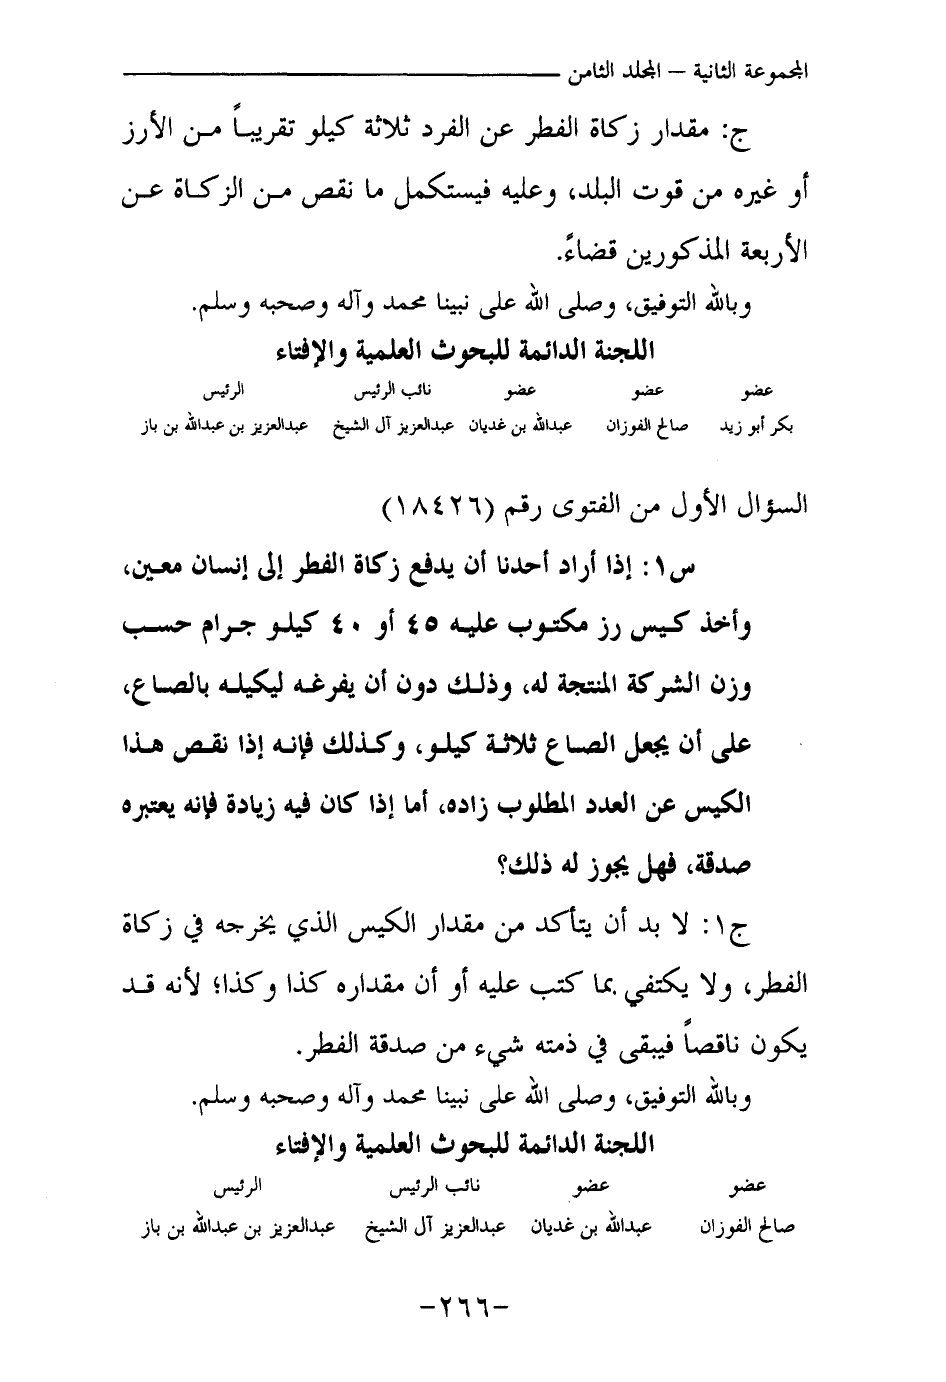 المجموعة الثانية – المجلد الثامن
ج: مقدار زكاة الفطر عن الفرد ثلاثة كيلو تقريباً من الأرز
أو غيره من قوت البلد، وعليه فيستكمل ما نقص من الزكاة عن
الأربعة المذكورين قضاءً.
وبالله التوفيق، وصلى الله على نبينا محمد وآله وصحبه وسلم.
اللجنة الدائمة للبحوث العلمية والإفتاء
عضو عضو عضو نائب الرئيس الرئيس
بكر أبو زيد صالح الفوزان عبدالله بن غديان عبدالعزيز آل الشيخ عبدالعزيز بن عبدالله بن باز
السؤال الأول من الفتوى رقم (١٨٤٢٦)
س١: إذا أراد أحدنا أن يدفع زكاة الفطر إلى إنسان معين،
وأخذ كيس رز مكتوب عليه ٤٥ أو ٤٠ كيلو جرام حسب
وزن الشركة المنتجة له، وذلك دون أن يفرغه ليكيله بالصاع،
على أن يجعل الصاع ثلاثة كيلو، وكذلك فإنه إذا نقص هذا
الكيس عن العدد المطلوب زاده، أما إذا كان فيه زيادة فإنه يعتبره
صدقة، فهل يجوز له ذلك؟
ج١: لا بد أن يتأكد من مقدار الكيس الذي يخرجه في زكاة
الفطر، ولا يكتفي بما كتب عليه أو أن مقداره كذا وكذا؛ لأنه قد
يكون ناقصاً فيبقى في ذمته شيء من صدقة الفطر.
وبالله التوفيق، وصلى الله على نبينا محمد وآله وصحبه وسلم.
اللجنة الدائمة للبحوث العلمية والإفتاء
عضو عضو نائب الرئيس الرئيس
صالح الفوزان عبدالله بن غديان عبدالعزيز آل الشيخ عبدالعزيز بن عبدالله بن باز
-٢٦٦-